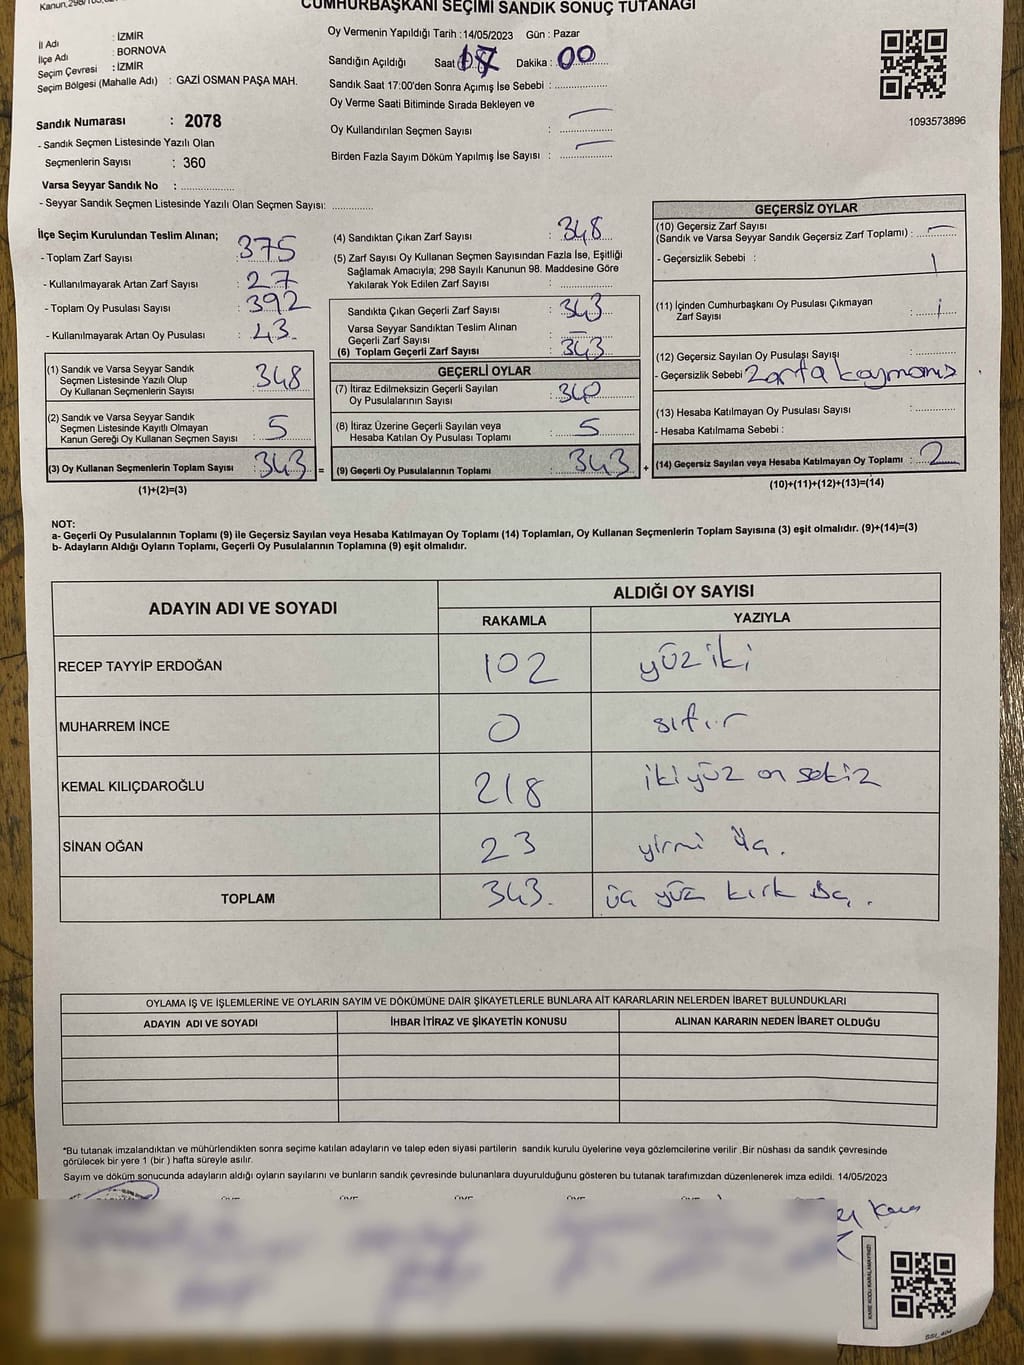 CUMHURBAŞKANI SEÇİMİ SANDIK SONUÇ TUTANAĞI
İl Adı : İZMİR
İlçe Adı : BORNOVA
Seçim Çevresi : İZMİR
Seçim Bölgesi (Mahalle Adı) : GAZİ OSMAN PAŞA MAH.
Sandık Numarası : 2078
- Sandık Seçmen Listesinde Yazılı Olan
Seçmenlerin Sayısı : 360
Varsa Seyyar Sandık No :
- Seyyar Sandık Seçmen Listesinde Yazılı Olan Seçmen Sayısı:
Oy Vermenin Yapıldığı Tarih : 14/05/2023 Gün : Pazar
Sandığın Açıldığı Saat Dakika : 00
Sandık Saat 17:00'den Sonra Açımış İse Sebebi :
Oy Verme Saati Bitiminde Sırada Bekleyen ve
Oy Kullandırılan Seçmen Sayısı : —
Birden Fazla Sayım Döküm Yapılmış İse Sayısı : —
1093573896
İlçe Seçim Kurulundan Teslim Alınan;
- Toplam Zarf Sayısı : 375
- Kullanılmayarak Artan Zarf Sayısı : 27
- Toplam Oy Pusulası Sayısı : 392
- Kullanılmayarak Artan Oy Pusulası : 43
(1) Sandık ve Varsa Seyyar Sandık
Seçmen Listesinde Yazılı Olup
Oy Kullanan Seçmenlerin Sayısı : 348
(2) Sandık ve Varsa Seyyar Sandık
Seçmen Listesinde Kayıtlı Olmayan
Kanun Gereği Oy Kullanan Seçmen Sayısı : 5
(3) Oy Kullanan Seçmenlerin Toplam Sayısı : 343 =
(1)+(2)=(3)
(4) Sandıktan Çıkan Zarf Sayısı : 348
(5) Zarf Sayısı Oy Kullanan Seçmen Sayısından Fazla İse, Eşitliği
Sağlamak Amacıyla; 298 Sayılı Kanunun 98. Maddesine Göre
Yakılarak Yok Edilen Zarf Sayısı :
Sandıkta Çıkan Geçerli Zarf Sayısı : 343
Varsa Seyyar Sandıktan Teslim Alınan
Geçerli Zarf Sayısı : —
(6) Toplam Geçerli Zarf Sayısı : 343
GEÇERLİ OYLAR
(7) İtiraz Edilmeksizin Geçerli Sayılan
Oy Pusulalarının Sayısı :
(8) İtiraz Üzerine Geçerli Sayılan veya
Hesaba Katılan Oy Pusulası Toplamı : 5
(9) Geçerli Oy Pusulalarının Toplamı : 343 +
GEÇERSİZ OYLAR
(10) Geçersiz Zarf Sayısı
(Sandık ve Varsa Seyyar Sandık Geçersiz Zarf Toplamı) : —
- Geçersizlik Sebebi : 1
(11) İçinden Cumhurbaşkanı Oy Pusulası Çıkmayan
Zarf Sayısı : 1
(12) Geçersiz Sayılan Oy Pusulası Sayısı :
- Geçersizlik Sebebi zarfa koymamış
(13) Hesaba Katılmayan Oy Pusulası Sayısı :
- Hesaba Katılmama Sebebi :
(14) Geçersiz Sayılan veya Hesaba Katılmayan Oy Toplamı : 2
(10)+(11)+(12)+(13)=(14)
NOT:
a- Geçerli Oy Pusulalarının Toplamı (9) ile Geçersiz Sayılan veya Hesaba Katılmayan Oy Toplamı (14) Toplamları, Oy Kullanan Seçmenlerin Toplam Sayısına (3) eşit olmalıdır. (9)+(14)=(3)
b- Adayların Aldığı Oyların Toplamı, Geçerli Oy Pusulalarının Toplamına (9) eşit olmalıdır.
ADAYIN ADI VE SOYADI ALDIĞI OY SAYISI
RAKAMLA YAZIYLA
RECEP TAYYİP ERDOĞAN 102 yüz iki
MUHARREM İNCE 0 sıfır
KEMAL KILIÇDAROĞLU 218 iki yüz on sekiz
SİNAN OĞAN 23 yirmi üç.
TOPLAM 343. üç yüz kırk üç.
OYLAMA İŞ VE İŞLEMLERİNE VE OYLARIN SAYIM VE DÖKÜMÜNE DAİR ŞİKAYETLERLE BUNLARA AİT KARARLARIN NELERDEN İBARET BULUNDUKLARI
ADAYIN ADI VE SOYADI İHBAR İTİRAZ VE ŞİKAYETİN KONUSU ALINAN KARARIN NEDEN İBARET OLDUĞU
*Bu tutanak imzalandıktan ve mühürlendikten sonra seçime katılan adayların ve talep eden siyasi partilerin sandık kurulu üyelerine veya gözlemcilerine verilir .Bir nüshası da sandık çevresinde
görülecek bir yere 1 (bir ) hafta süreyle asılır.
Sayım ve döküm sonucunda adayların aldığı oyların sayılarını ve bunların sandık çevresinde bulunanlara duyurulduğunu gösteren bu tutanak tarafımızdan düzenlenerek imza edildi. 14/05/2023
KARE KODU KARALAMAYINIZ!